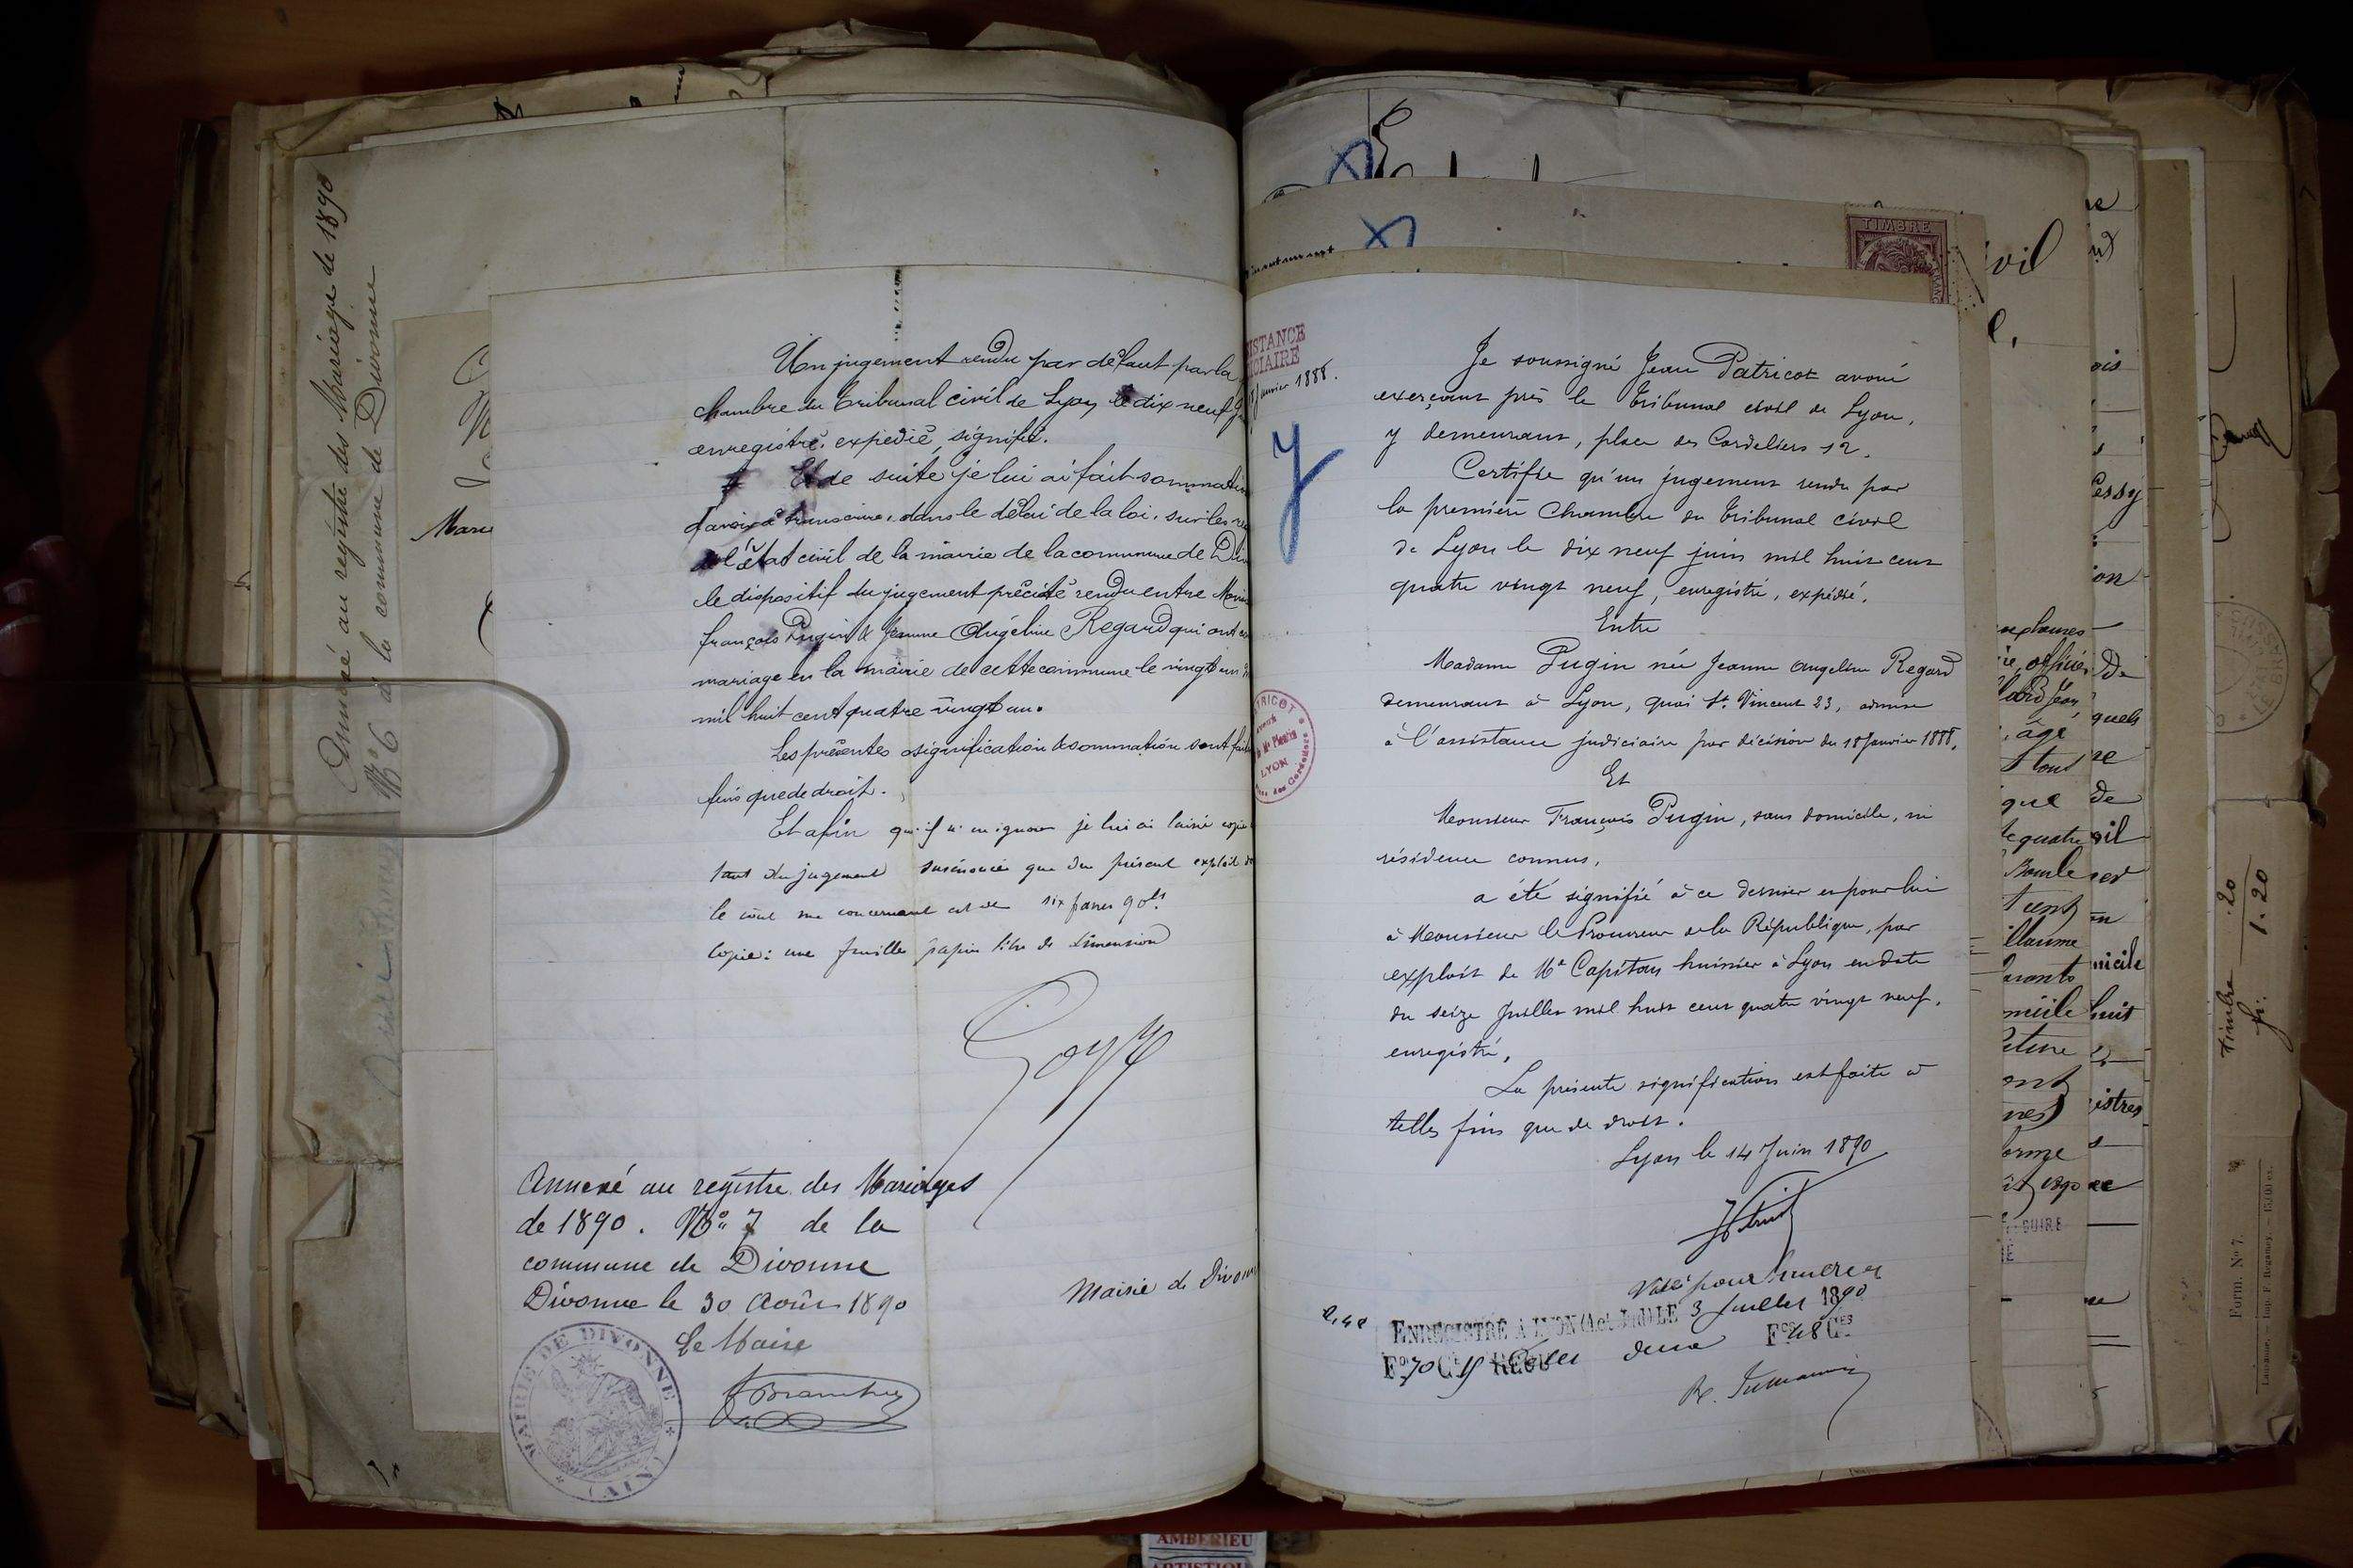 Annexé au registre des Mariage de 1890
N° 6 de la commune de Divonne
Marie
Un jugement rendu par défaut par la
chambre du Tribunal civil de Lyon le dix neuf
enregistré, expédié, signifié.
Et de suite je lui ai fait sommation
d'avoir à transcrire, dans le délai de la loi, sur les
de l'état civil de la mairie de la commune de
le dispositif du jugement précité rendu entre
françois Pugin & Jeanne Angéline Regard qui ont
mariage en la mairie de cette commune le vingt un
mil huit cent quatre vingt un.
Les présentes signification & sommation sont
fins que de droit.
Et afin qu'il n'en ignore je lui ai laissé copie
tant du jugement susénoncé que du présent exploit
le coût me concernant est de six francs 90 cts
Copie: une feuille papier libre de dimension
Annexé au registre des Mariages
de 1890. N° 7 de la
commune de Divonne
Divonne le 30 Août 1890
Le Maire
MAIRIE DE DIVONNE (AIN)
Mairie de Divonne
TIMBRE
ISTANCE
ICIAIRE
Janvier 1888.
Y
Je soussigné Jean Patricot avoué
exerçant près le Tribunal civil de Lyon,
y demeurant, place des Cordeliers 12.
Certifie qu'un jugement rendu par
la première Chambre du Tribunal civil
de Lyon le dix neuf juin mil huit cent
quatre vingt neuf, enregistré, expédié.
Entre
Madame Pugin née Jeanne Angeline Regard
demeurant à Lyon, quai St. Vincent 23, admise
à l'assistance judiciaire par décision du 18 Janvier 1888,
Et
Monsieur François Pugin, sans domicile, ni
résidence connus,
a été signifié à ce dernier en pour lui
à Monsieur le Procureur de la République, par
exploit de Me Capitan huissier à Lyon en date
du seize Juillet mil huit cent quatre vingt neuf,
enregistré,
La présente signification est faite à
telles fins que de droit.
Lyon le 14 Juin 1890
TRICOT
LYON
2,48
ENREGISTRÉ A LYON LE 3 Juillet 1890
REÇU deux Fcs 48 Ces
vil
Timbre .20
fr. 1.20
Form. N° 7.
AMBERIEU